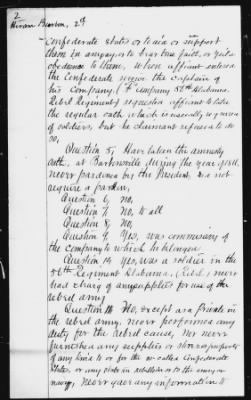 2
Hiram Barton, 2d
Confederate States or to aid or support
them in any way, or to bear true faith, or yield
obedience to them, when affiant entered
the Confederate service the captain of
his Company (F Company 56th Alabama
Rebel Regiment) requested affiant to take
the regular oath which is usually required
of soldiers, but he claimant refused to do
so,
Question 5, Have taken the amnesty
oath, at during the year 1865,
never pardoned by the President, did not
require a pardon,
Question 6, no,
Question 7, no to all
Question 8, no,
Question 9, Yes, was commissary of
the Company to which he belonged
Question 10, Yes, was a soldier in the
56th Regiment Alabama, (Rebel) never
had charge of any supplies for use of the
rebel army
Question 11, No, except as a private in
the rebel army, never performed any
duty for the Rebel cause, Nor never
furnished any supplies or stores or property
of any kind to or for the so called Confederate
States, or any state in rebellion or to the army or
navy, Never gave any information to